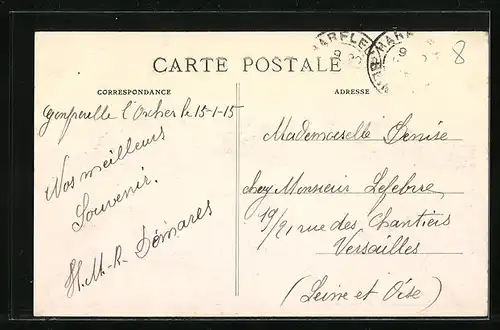 MARE
CARTE POSTALE
CORRESPONDANCE
ADRESSE
8
l'Orcher le 15-1-15
Nos meilleurs
Souvenir.
H.M.-R. Démares
Mademoiselle Denise
chez Monsieur Lefebvre
19/21 rue des Chantiers
Versailles
(Seine et Oise)